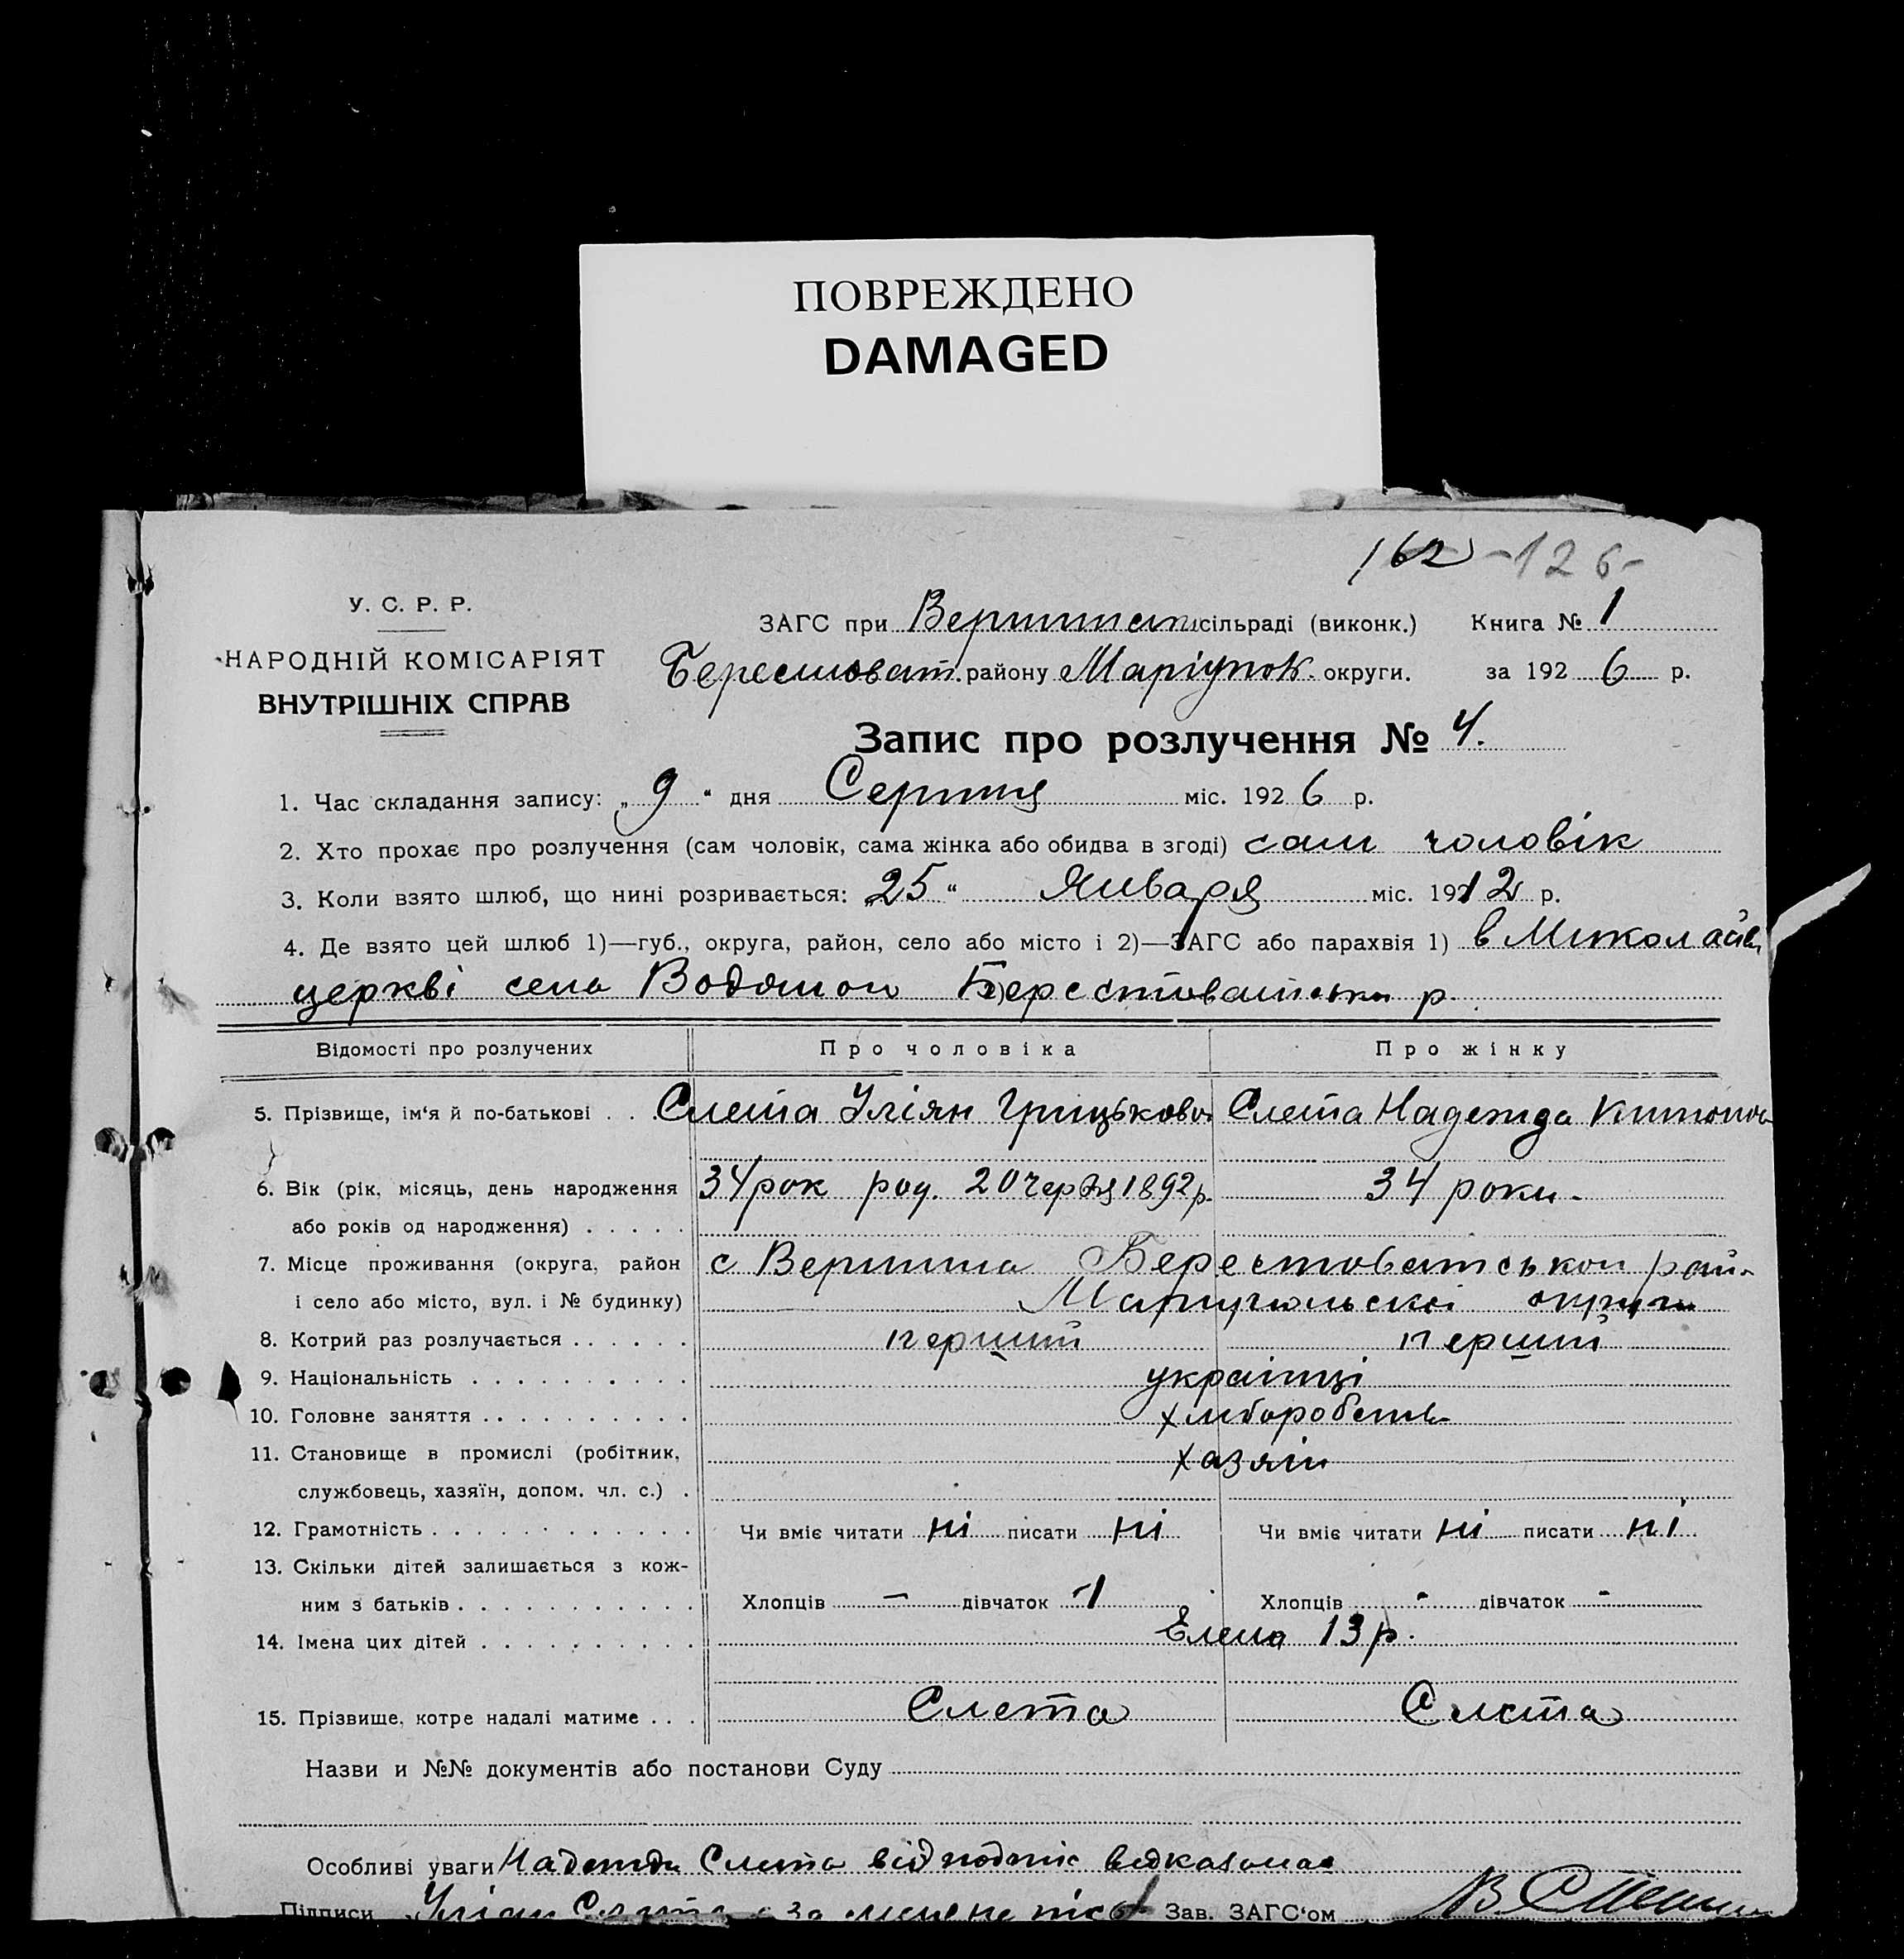 ПОВРЕЖДЕНО
DAMAGED
162 -126-
У. С. Р. Р.
НАРОДНІЙ КОМІСАРІЯТ
ВНУТРІШНІХ СПРАВ
ЗАГС при сільраді (виконк.) Книга № 1
Берестоват. району Маріупок. округи. за 1926 р.
Запис про розлучення № 4.
1. Час складання запису: „9“ дня Серпня міс. 1926 р.
2. Хто прохає про розлучення (сам чоловік, сама жінка або обидва в згоді) сам чоловік
3. Коли взято шлюб, що нині розривається: „25“ Января міс. 1912 р.
4. Де взято цей шлюб 1)—губ., округа, район, село або місто і 2)—ЗАГС або парахвія 1) в Миколаїв
церкві села Водяної Берестоватськи р.
Відомості про розлучених Про чоловіка Про жінку
5. Прізвище, ім'я й по-батькові . . . Слета Уліян Грицьков Слета Надежда
6. Вік (рік, місяць, день народження 34 рок род. 20 черв̄ця 1892 р. 34 роки.
або років од народження) . . . . .
7. Місце проживання (округа, район с Вершина Берестоватськой рай.
і село або місто, вул. і № будинку) округи
8. Котрий раз розлучається . . . . . . перший перший
9. Національність . . . . . . . . . . українці
10. Головне заняття . . . . . . . . . .
11. Становище в промислі (робітник, хазяін
службовець, хазяїн, допом. чл. с.) .
12. Грамотність . . . . . . . . . . . . Чи вміє читати ні писати ні Чи вміє читати ні писати ні
13. Скільки дітей залишається з кож-
ним з батьків . . . . . . . . . . . Хлопців – дівчаток -1 Хлопців - дівчаток -
14. Імена цих дітей . . . . . . . . . . Елена 13 р.
15. Прізвище, котре надалі матиме . . . Слета Слета
Назви и №№ документів або постанови Суду
Особливі уваги Надежда Слета від відказалас
Підписи Уліян Слета за Зав. ЗАГС'ом